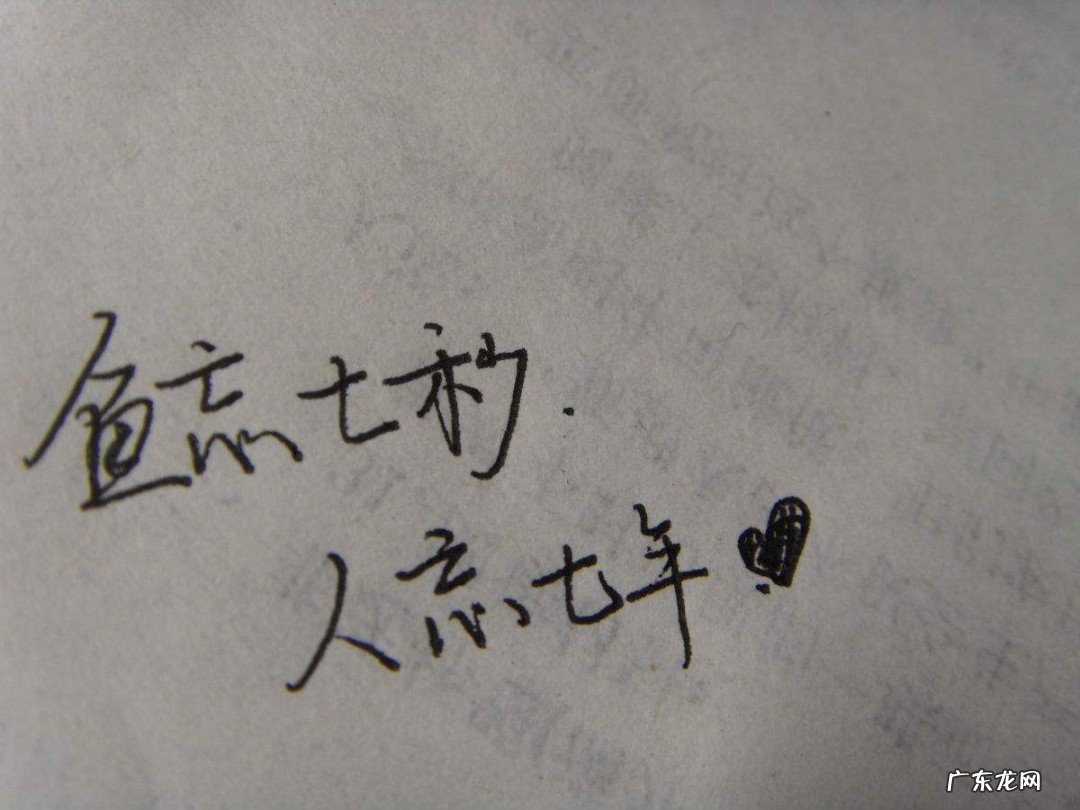 鱼忘七秒.
人忘七年
广东龙网